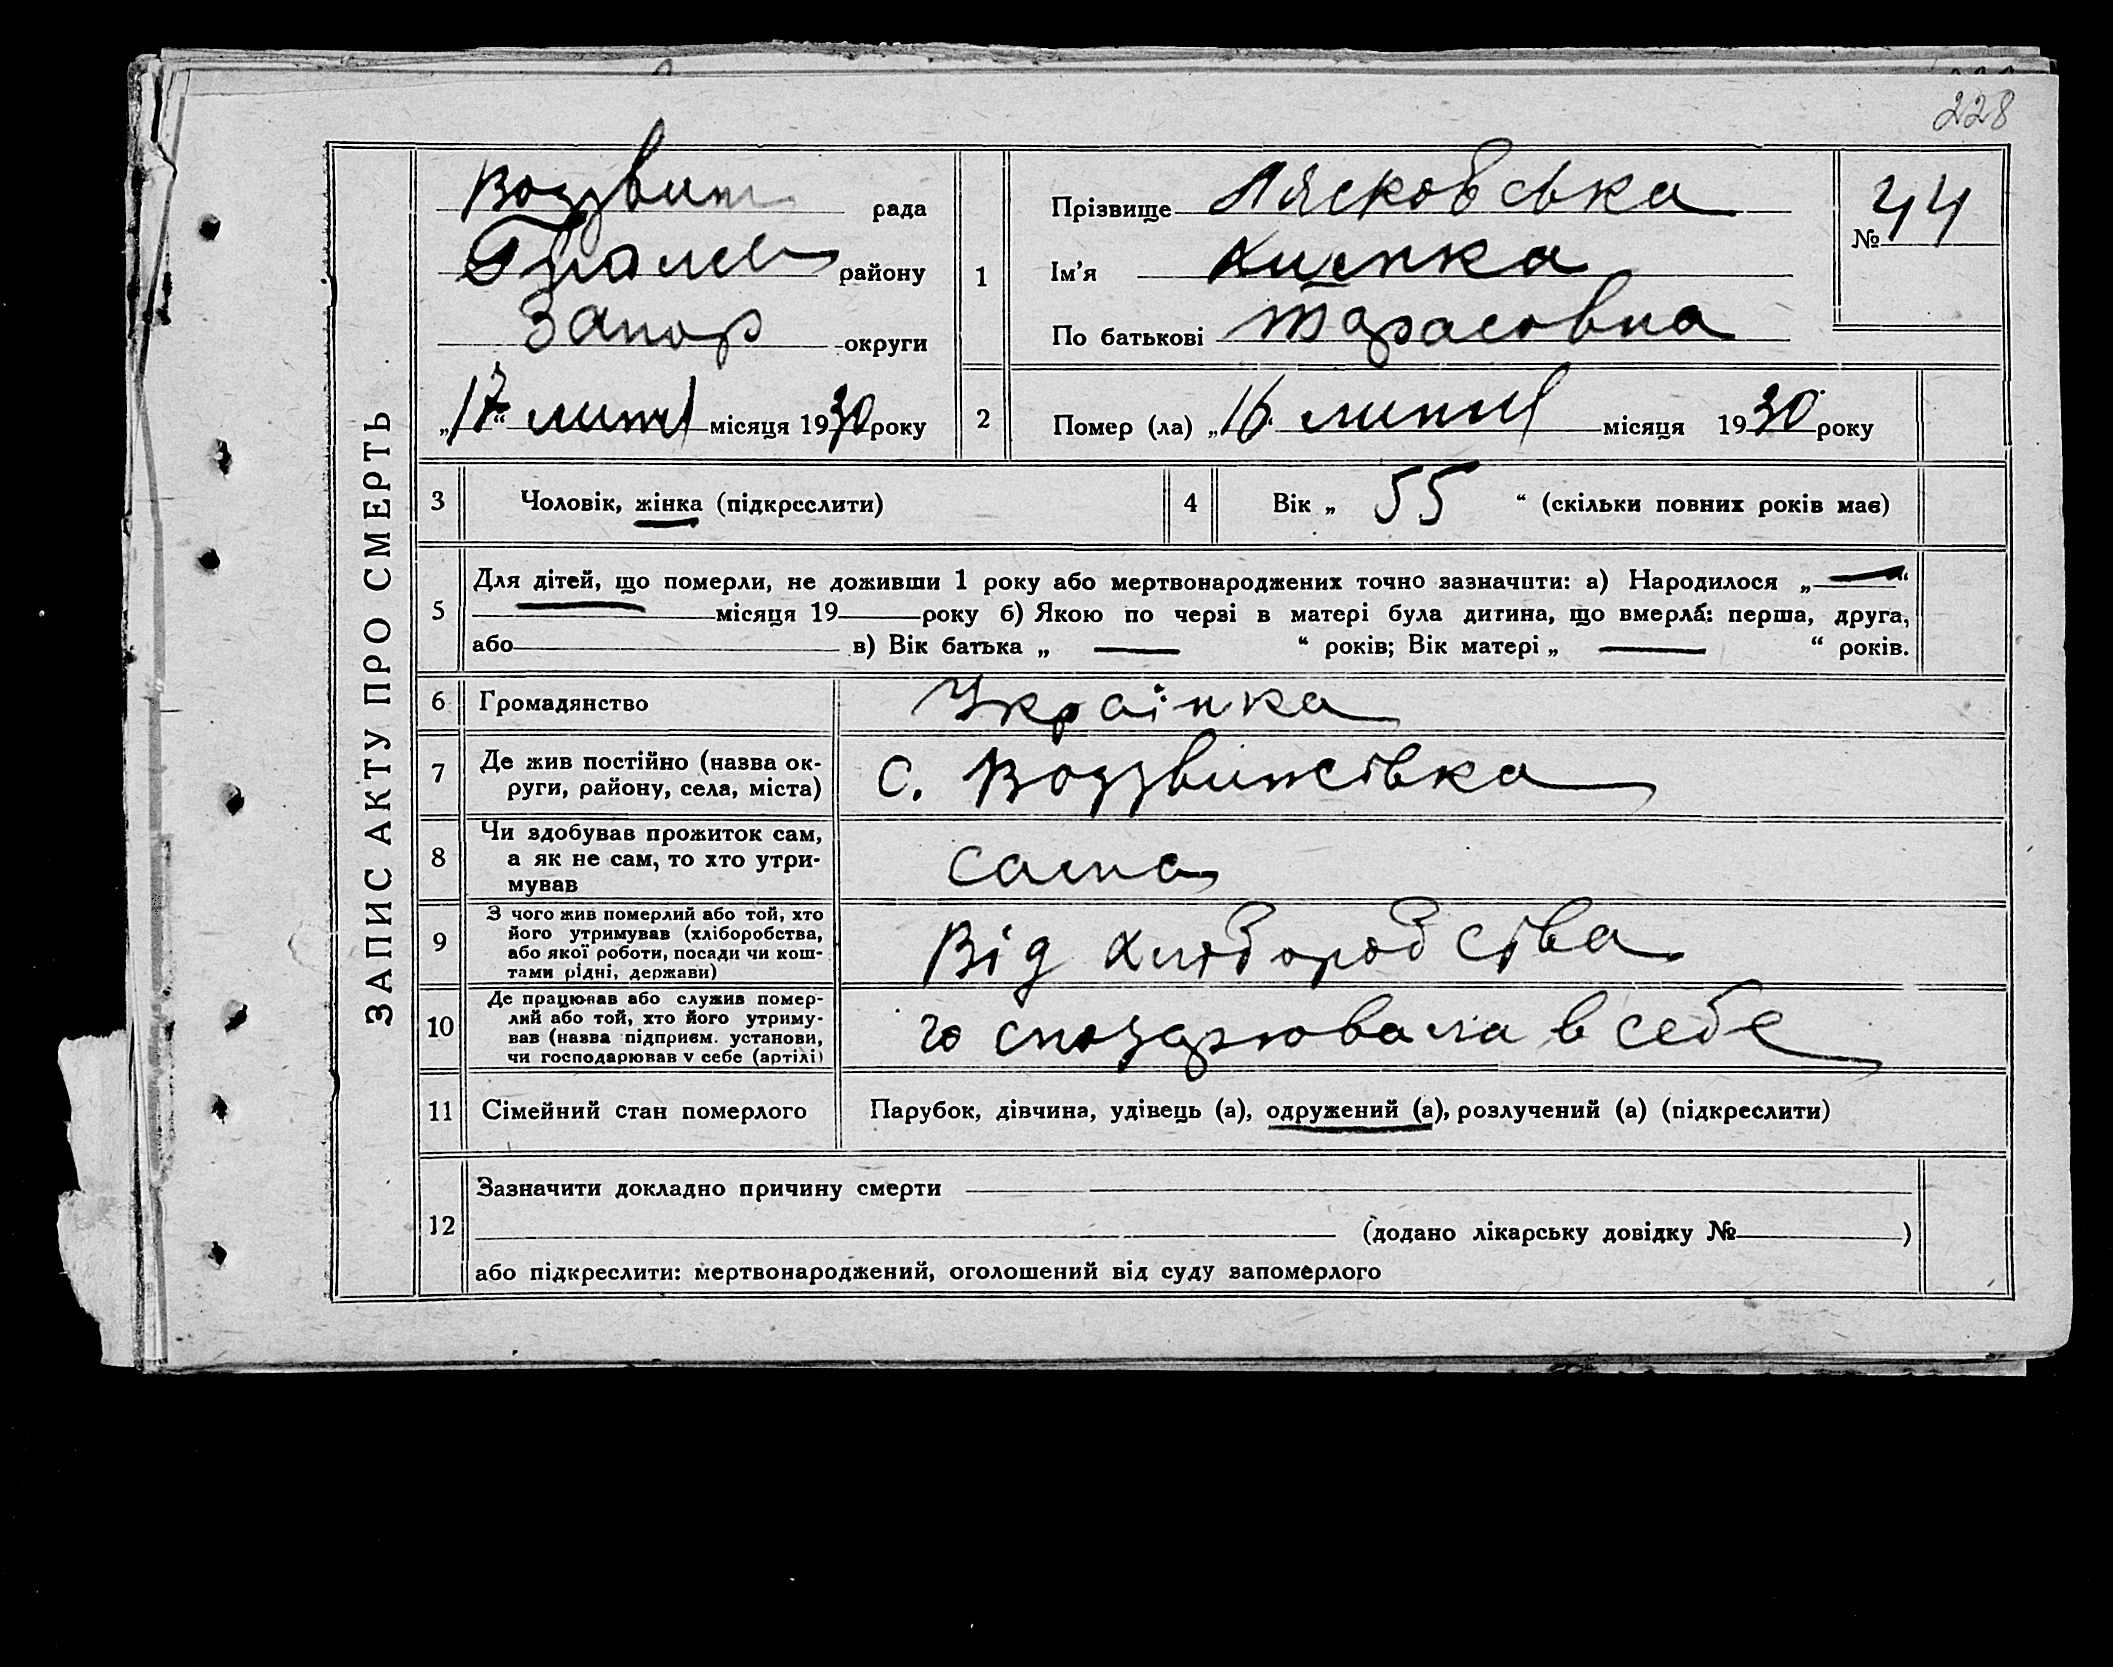 228
ЗАПИС АКТУ ПРО СМЕРТЬ
Воздвиж рада
Гуляй району
Запор округи
„17“ липня місяця 1930 року
1
Прізвище Лясковська
Ім'я Химка
По батькові Тарасовна
№ 44
2
Помер (ла) „16 липня місяця 1930 року
3 Чоловік, жінка (підкреслити)
4 Вік „ 55 “ (скільки повних років має)
5
Для дітей, що померли, не доживши 1 року або мертвонароджених точно зазначити: а) Народилося „ — “
— місяця 19 року б) Якою по черзі в матері була дитина, що вмерла: перша, друга,
або в) Вік батька „ — “ років; Вік матері „ — “ років.
6 Громадянство Українка
7 Де жив постійно (назва ок-
руги, району, села, міста) с. Воздвижівка
8 Чи здобував прожиток сам,
а як не сам, то хто утри-
мував сама
9 З чого жив померлий або той, хто
його утримував (хліборобства,
або якої роботи, посади чи кош-
тами рідні, держави) Від хліборобства
10 Де працював або служив помер-
лий або той, хто його утриму-
вав (назва підприєм. установи,
чи господарював у себе (артілі) го сподарювала в себе
11 Сімейний стан померлого Парубок, дівчина, удівець (а), одружений (а), розлучений (а) (підкреслити)
12
Зазначити докладно причину смерти
(додано лікарську довідку № )
або підкреслити: мертвонароджений, оголошений від суду запомерлого